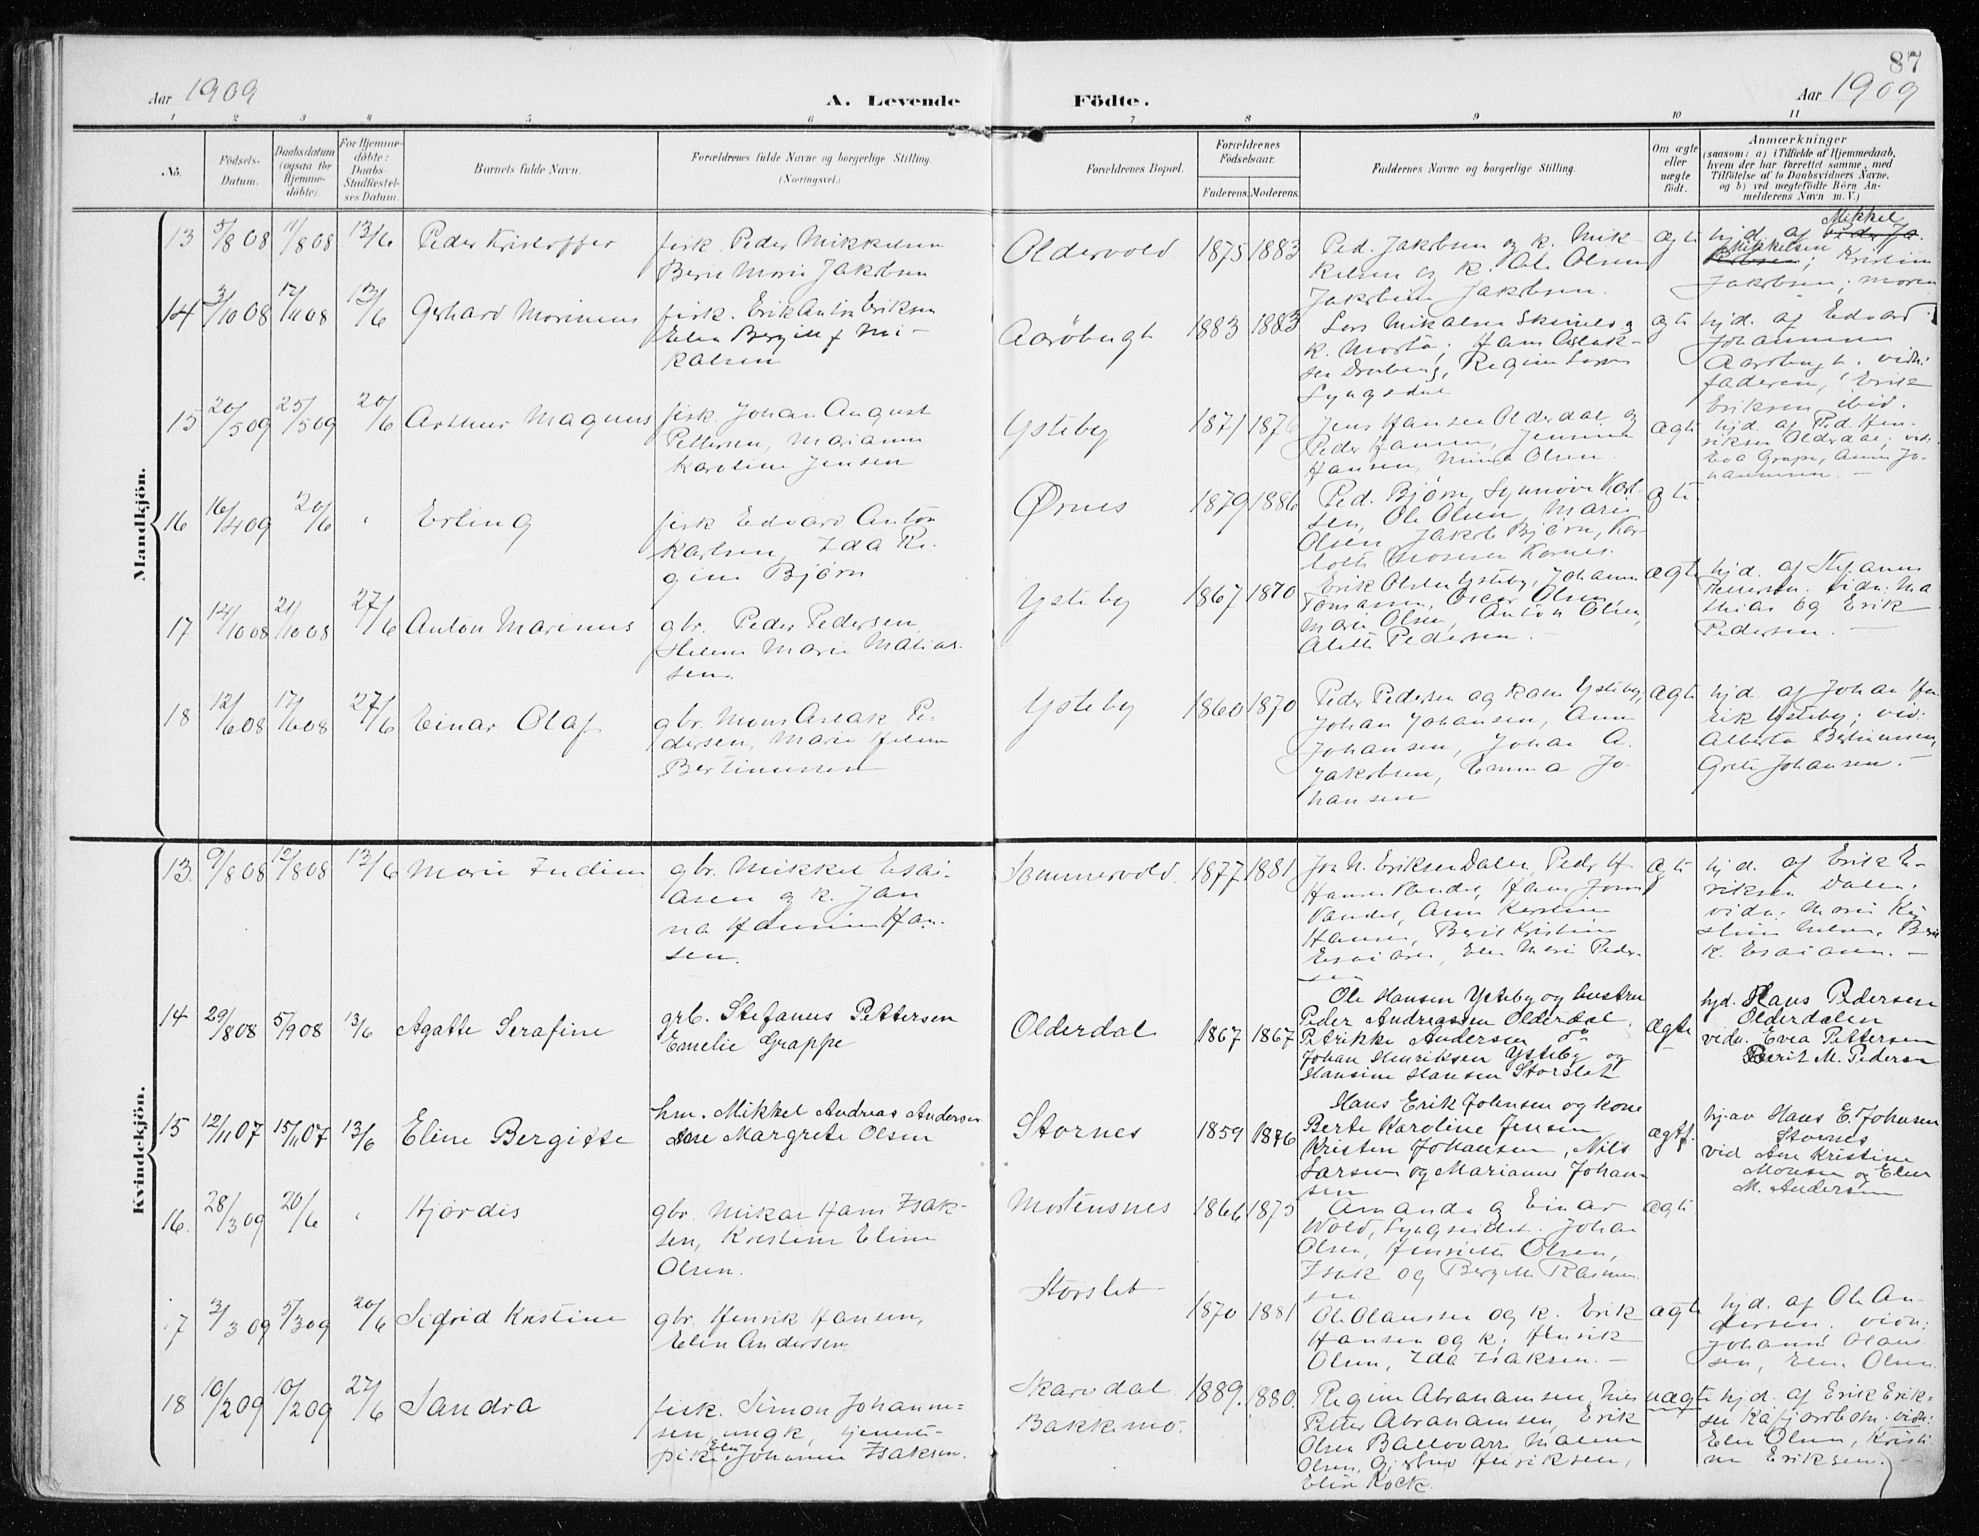 87
Aar 1909
A. Levende
Födte.
Aar 1909
1 2 3 4 5 6 7 8 9 10 11
No.
Födsels-
Datum.
Daabsdatum
(ogsaa for
Hjemme-
döbte).
For Hjemme-
döbte:
Daabs-
Stadfæstel-
ses Datum.
Barnets fulde Navn.
Forældrenes fulde Navne og borgerlige Stilling.
(Næringsvei.)
Forældrenes Bopæl.
Forældrenes
Födselsaar.
Faderens. Moderens.
Faddernes Navne og borgerlige Stilling.
Om ægte
eller
uægte
födt.
Anmærkninger
(saasom: a) i Tilfælde af Hjemmedaab,
hvem der har forrettet samme, med
Tilföielse af to Daabsvidners Navne,
og b) ved uægtefödte Börn An-
melderens Navn m. V.)
Mandkjön.
13 5/8 08 11/8 08 13/6 Peder Kristoffer
fisk. Peder Mikkelsen
Berit Marie Jakobsen
Oldervold 1875 1883
Ped. Jakobsen og k. Mik-
kelsen og k. Ole Olsen
Jakobine Jakobsen.
ægte
hjd. af Mikkel
Mikkelsen; Kristine
Jakobsen; moren
14 3/10 08 17/11 08 13/6 Gerhard Marinius
fisk. Erik Anton Eriksen
Elen Bergitte Mi-
kalsen
Aarøbugt 1883 1883
Lars Mikalsen
k. Marta; Hans Aslak-
sen, Regine Larsen
Lyngsdal
ægte
hjd. af Edvard
Johannesen
Aarøbugt. vidn:
faderen, Erik
Eriksen ibid.
15 20/5 09 25/5 09 20/6 Arthur Magnus
fisk. Johan August
Pettersen, Marianne
Karoline Jensen
Ysteby 1871 187
Jens Hansen Olderdal og
Peder Hansen, Jensine
Hansen, Mina Olsen.
ægte
hjd. af Ped. Hen-
riksen Olderdal; vidn:
Eva Grape, Anne Jo-
hannesen –
16 16/4 09 20/6 Erling
fisk Edvard Anton
Karlsen, Ida Re-
gine Bjørn
Ørnes 1879 1886
Ped. Bjørn, Synnøve Karl-
sen, Ole Olsen, Marie
Olsen, Jakob Bjørn, Kar-
lotte Mosesen Kornes.
ægte
17 14/10 08 21/10 08 27/6 Anton Marinus
gbr. Peder Pedersen
Helene Marie Matias-
sen.
Ysteby 1867 1870
Erik Olsen Ysteby, Johanne
Tomassen, Oscar Olsen,
Marie Olsen, Anton Olsen,
Alette Pedersen. –
ægte
hjd. af Stefanus
Pettersen. vidn: Ma-
thias og Erik
Pedersen. –
18 12/6 08 17/6 08 27/6 Einar Olaf
gbr. Mons Aslak Pe-
dersen, Marie Helene
Bertinussen
Ysteby 1860 1870
Peder Pedersen og kone Ysteby,
Johan Johansen, Anne
Johansen, Johan A.
Jakobsen, Emma Jo-
hansen
ægte
hjd. af Johan Hen-
rik Ysteby; vid:
Alberta Bertinussen,
Grete Johansen. –
Kvindekjön.
13. 9/8 08 12/8 08 13/6 Marie Indine
gbr. Mikkel Esai-
asen og k. Jan
na Hansine Han-
sen.
Sommervold. 1877 1881
Jon N. Eriksen Dalen, Peder H.
Hansen, Hans Jons
Vandet, Anne Kerstine
Hansen, Berit Kristine
Esaiasen, Elen Marie Peder-
sen
ægte
hjd. af Erik E-
riksen Dalen.
vidn: Marie Kir
stine Nilsen, Berit
K. Esaiasen. –
14 29/8 08 5/9 08 13/6 Agathe Serafine
grb. Stefanus Pettersen
Emelie Grappe
Olderdal 1867 1867
Ole Hansen Ysteby og hustru
Peder Andreassen Olderdal.
Petrikke Andersen do
Johan Henriksen Ysteby og
Hansine Hansen Storslet
ægte
hjd. Hans Pedersen
Olderdalen
vidn. Evea Pettersen
Berit M. Pedersen
15 12/11 07 15/11 07 13/6 Eline Bergitte
hm. Mikkel Andreas Andersen
Ane Margrete Olsen
Stornes 1859 1876
Hans Erik Johnsen og kone
Berte Karoline Jensen
Kristen Johansen, Nils
Larsen og Marianne Johan-
sen
ægtf.
hj av Hans E. Johnsen
Stornes
vid Ane Kristine
Monsen og Elen
M. Andersen
16. 28/3 09 20/6 Hjørdis
gbr. Mikal Hans Isak-
sen, Kristine Eline
Olsen.
Mortensnes 1866 1875
Amanda og Einar
Wold, Lyngseidet. Johan
Olsen, Henriette Olsen,
Isak og Berg M. Rasmus
sen
ægte
17 3/3 09 5/3 09 20/6 Sigrid Kristine
gbr. Henrik Hansen,
Elen Andersen
Storslet 1870 1881
Ole Olaussen og k. Erik
Hansen og k. Henrik
Olsen, Ida Isaksen. –
ægte
hjd. af Ole An-
dersen. vidn:
Johanne Olaus
sen, Elen Olsen
18 10/2 09 10/2 09 27/6 Sandra
fisk. Simon Johanne-
sen ungk, tjeneste-
pike Elen Johanne Isaksen.
Skarvdal
Bakkemo. 1889. 1880.
Regine Abrahamsen, Nils
Petter Abrahamsen, Erik
Olsen Ballovarre, Malene
Olsen, Gjertrud Henriksen,
Eline Kock.
uægte
hjd. af Erik Erik-
sen Kafjordbotn. vidn:
Elen Olsen, Kristi-
ne Eriksen.